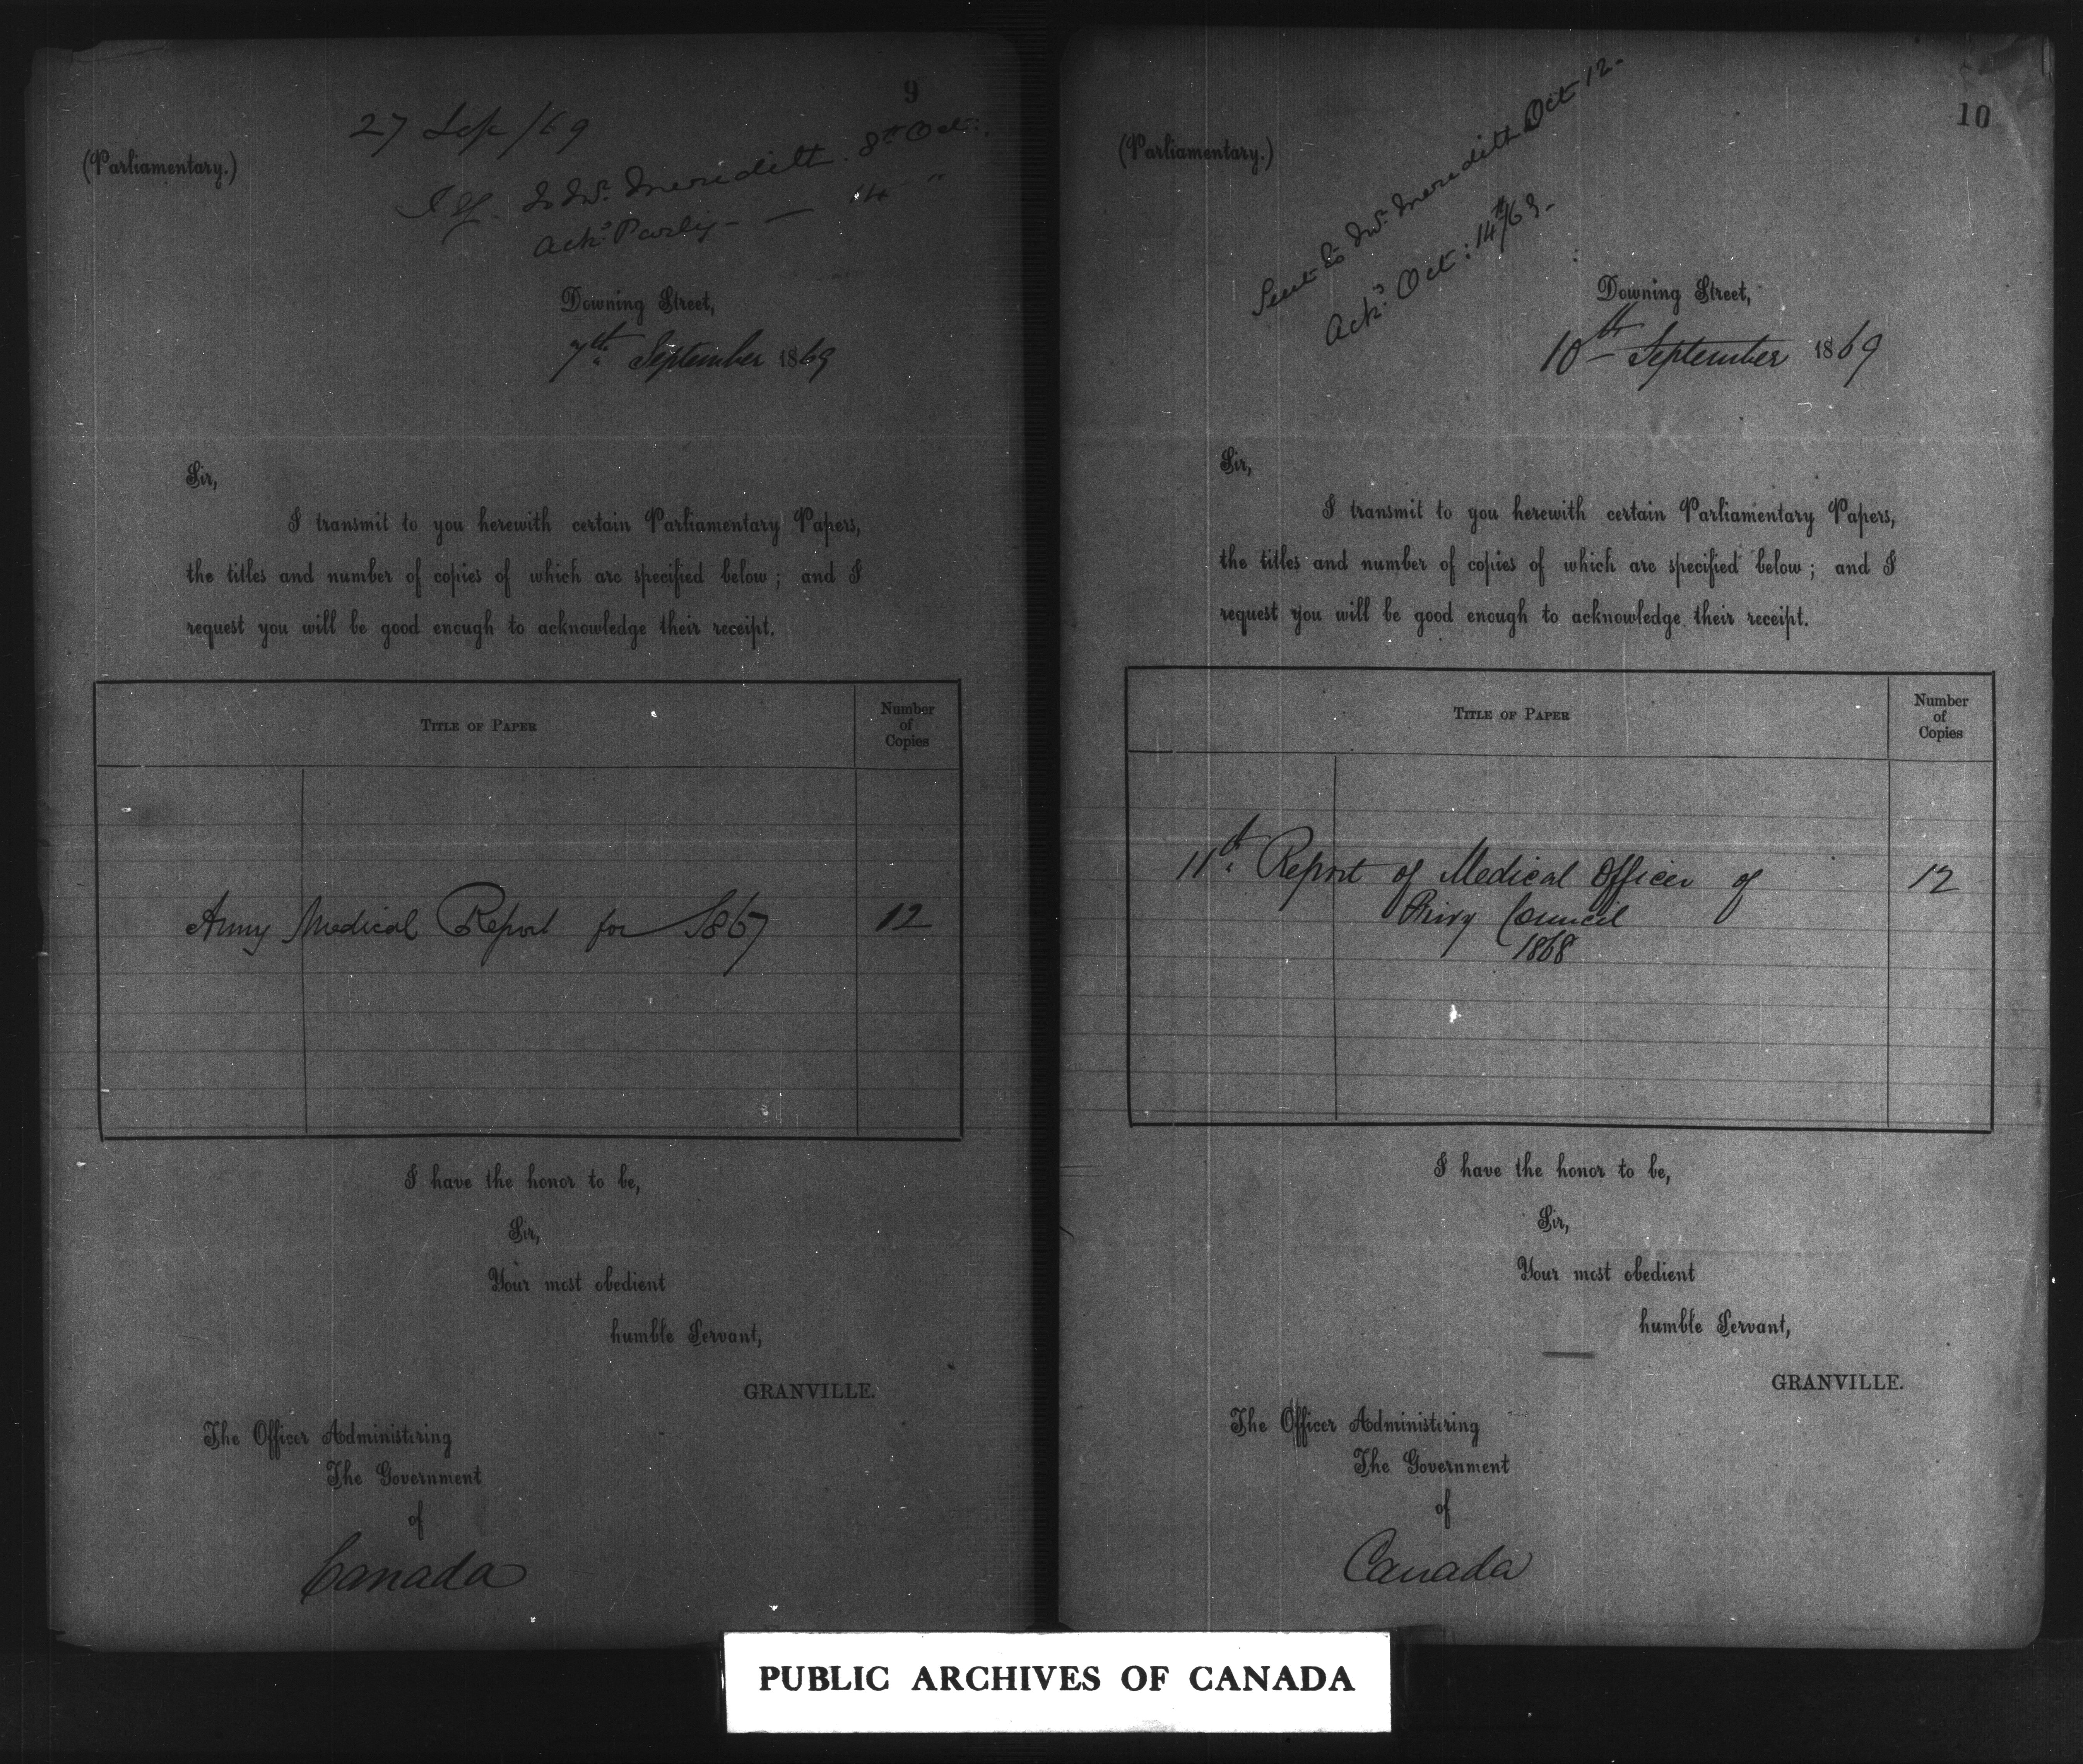 9
27 Sep/69
(Parliamentary.)
to Mr. Meredith. 8th Oct:.
Ackd. Parly - — 14 "
Downing Street,
7th September 1869
Sir,
I transmit to you herewith certain Parliamentary Papers,
the titles and number of copies of which are specified below; and I
request you will be good enough to acknowledge their receipt.
TITLE OF PAPER
Number
of
Copies
Army Medical Report for 1867 12
I have the honor to be,
Sir,
Your most obedient
humble Servant,
GRANVILLE.
The Officer Administering
The Government
of
Canada
10
(Parliamentary.)
Sent to Mr. Meredith Oct 12-
Ackd. Oct: 14th/69-
Downing Street,
10th September 1869
Sir,
I transmit to you herewith certain Parliamentary Papers,
the titles and number of copies of which are specified below; and I
request you will be good enough to acknowledge their receipt.
TITLE OF PAPER
Number
of
Copies
11th Report of Medical Officer of 12
Privy Council
1868
I have the honor to be,
Sir,
Your most obedient
humble Servant,
GRANVILLE.
The Officer Administering
The Government
of
Canada
PUBLIC ARCHIVES OF CANADA